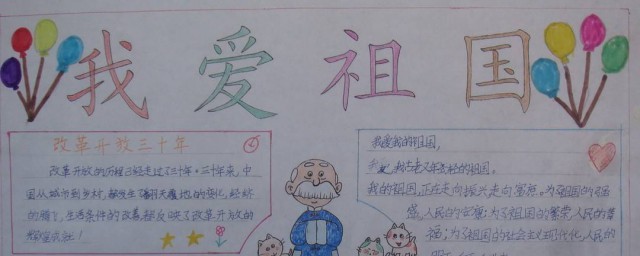 我爱祖国
改革开放三十年
改革开放的历程已经走过了三十年。三十年来,中
国从城市到乡村,都发生了翻天覆地的变化,经济
的腾飞,生活条件的改善都反映了改革开放的
辉煌成就!
我爱我的祖国,
我古老又年轻的祖国。
我的祖国,正在走向振兴走向富强。为祖国的强
盛,人民的富裕;为了祖国的繁荣人民的幸
福;为了祖国的社会主义现代化,人民的